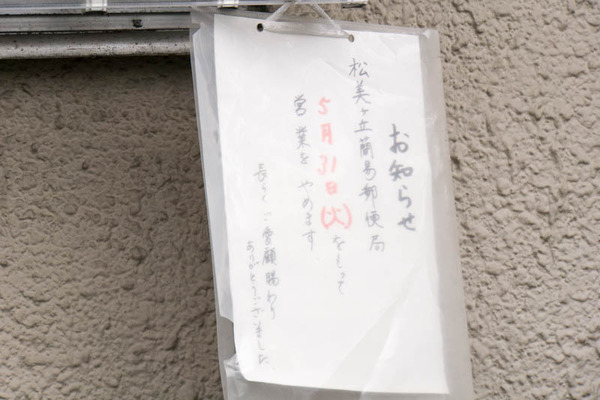 お知らせ
松美ヶ丘簡易郵便局
5月31日(火)をもって
営業をやめます
長らくご愛顧賜わり
ありがとうございました